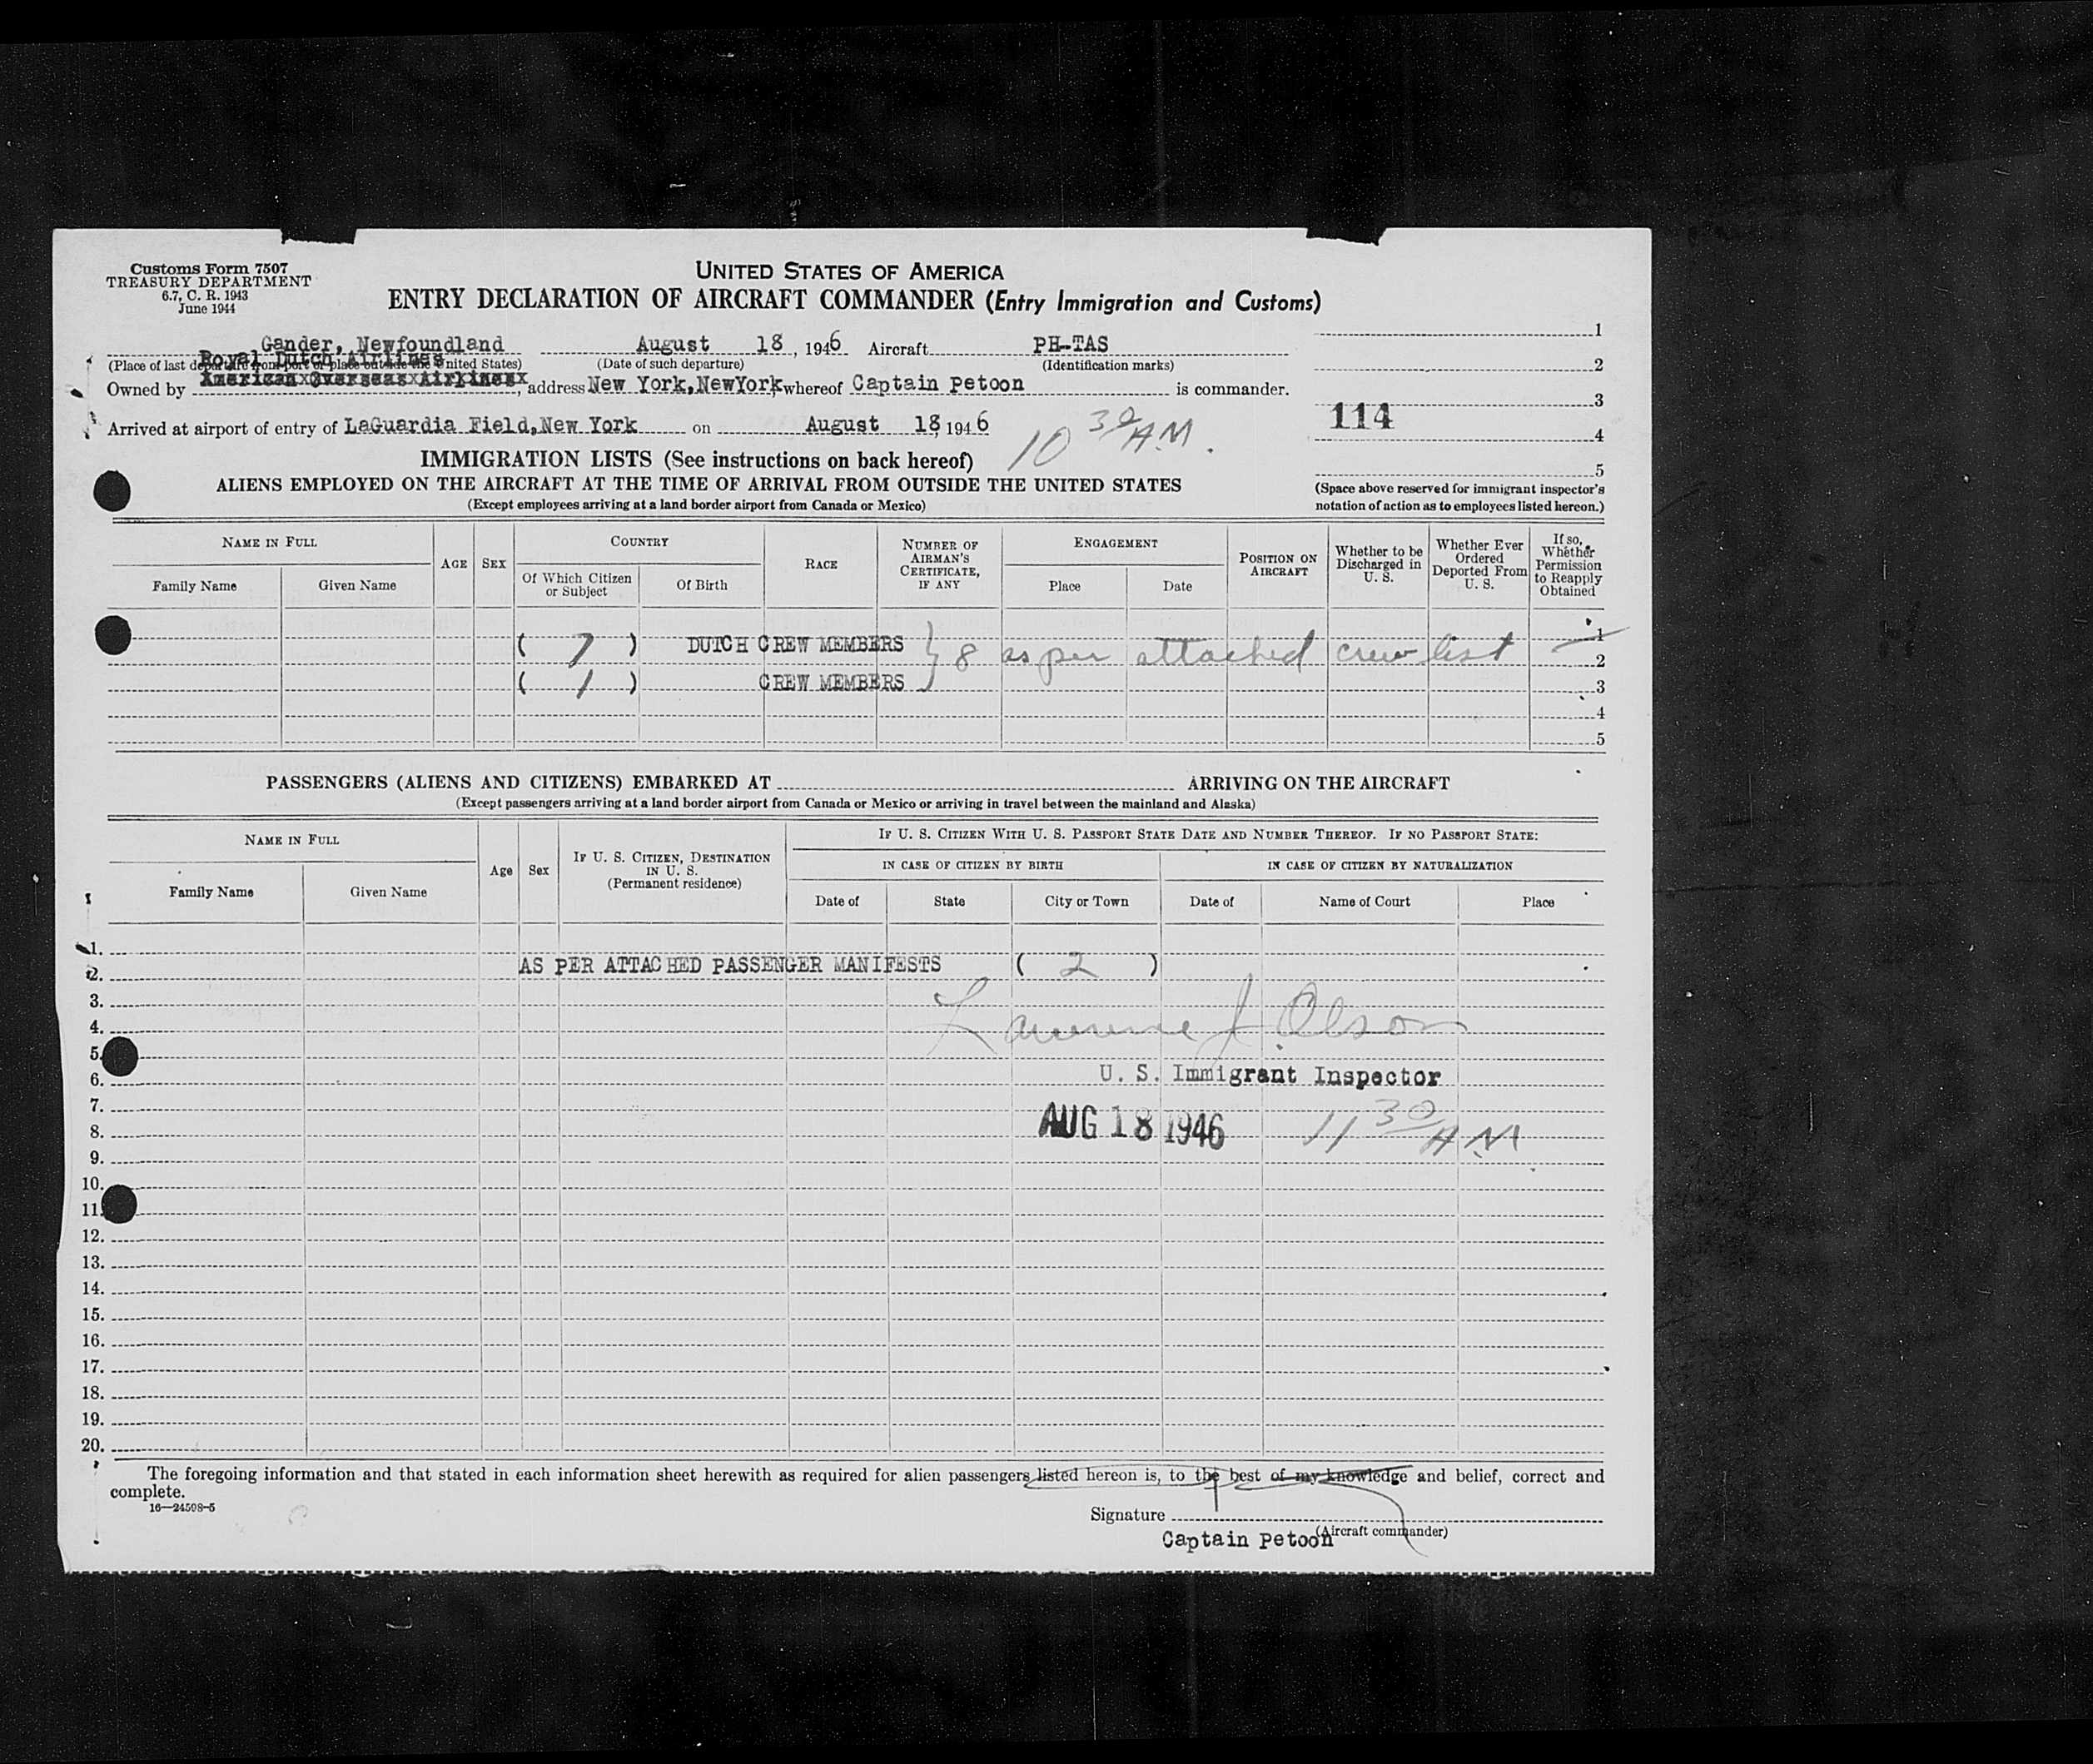 Customs Form 7507
TREASURY DEPARTMENT
6.7, C. R. 1943
June 1944
UNITED STATES OF AMERICA
ENTRY DECLARATION OF AIRCRAFT COMMANDER (Entry Immigration and Customs)
Gander, Newfoundland August 18, 1946 Aircraft PH-TAS
(Place of last departure from port or place outside the United States) (Date of such departure) (Identification marks)
Royal Dutch Airlines
Owned by American Overseas Airlines, address New York, NewYork, whereof Captain Petoon is commander.
Arrived at airport of entry of LaGuardia Field, New York on August 18, 1946 10 30 A.M.
1
2
3
114
4
5
(Space above reserved for immigrant inspector's notation of action as to employees listed hereon.)
IMMIGRATION LISTS (See instructions on back hereof)
ALIENS EMPLOYED ON THE AIRCRAFT AT THE TIME OF ARRIVAL FROM OUTSIDE THE UNITED STATES
(Except employees arriving at a land border airport from Canada or Mexico)
NAME IN FULL
Family Name Given Name
AGE SEX
COUNTRY
Of Which Citizen or Subject Of Birth
RACE
NUMBER OF AIRMAN'S CERTIFICATE, IF ANY
ENGAGEMENT
Place Date
POSITION ON AIRCRAFT
Whether to be Discharged in U. S.
Whether Ever Ordered Deported From U. S.
If so, Whether Permission to Reapply Obtained
1
( 7 ) DUTCH CREW MEMBERS } 8 as per attached crew list 2
( 1 ) CREW MEMBERS 3
4
5
PASSENGERS (ALIENS AND CITIZENS) EMBARKED AT ARRIVING ON THE AIRCRAFT
(Except passengers arriving at a land border airport from Canada or Mexico or arriving in travel between the mainland and Alaska)
NAME IN FULL
Family Name Given Name
Age Sex
IF U. S. CITIZEN, DESTINATION IN U. S.
(Permanent residence)
IF U. S. CITIZEN WITH U. S. PASSPORT STATE DATE AND NUMBER THEREOF. IF NO PASSPORT STATE:
IN CASE OF CITIZEN BY BIRTH IN CASE OF CITIZEN BY NATURALIZATION
Date of State City or Town Date of Name of Court Place
1.
2. AS PER ATTACHED PASSENGER MANIFESTS ( 2 )
3.
4. Lawrence J. Olson
5.
6. U. S. Immigrant Inspector
7.
8. AUG 18 1946 11 30 A.M
9.
10.
11.
12.
13.
14.
15.
16.
17.
18.
19.
20.
The foregoing information and that stated in each information sheet herewith as required for alien passengers listed hereon is, to the best of my knowledge and belief, correct and
complete.
16—24598-5
Signature
(Aircraft commander)
Captain Petoon